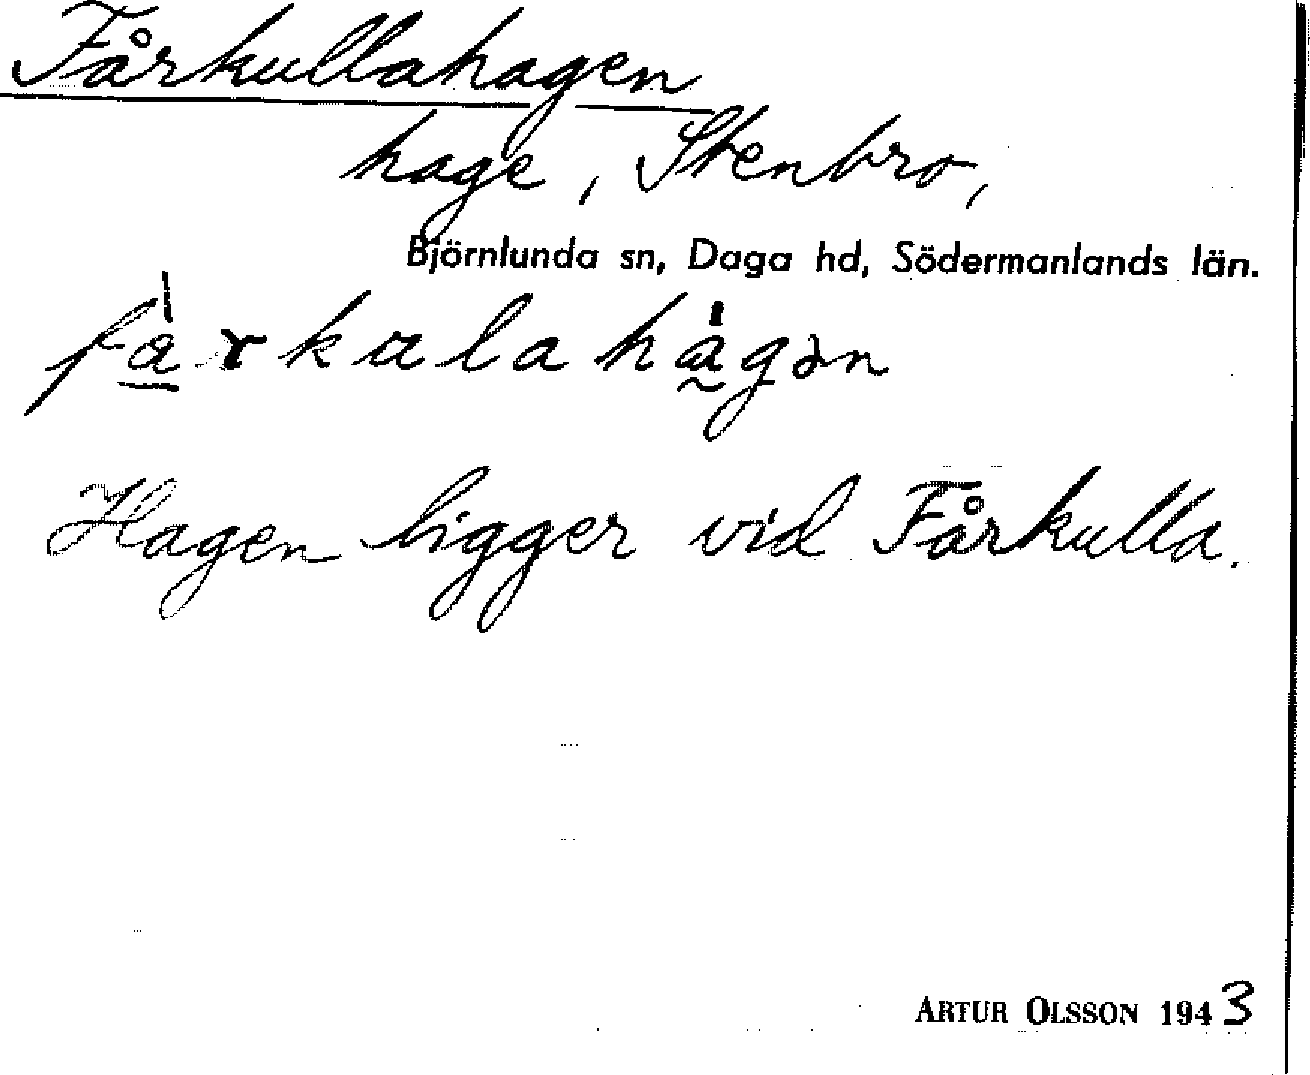 Fårkullahagen
hage, Stenbro,
Björnlunda sn, Daga hd, Södermanlands län.
fàrkulahágən
Hagen ligger vid Fårkulla.
ARTUR OLSSON 1943